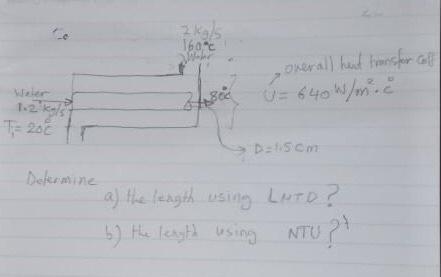 2 kg/s
160°C
Water
overall heat transfer Coff
U = 640 W/m².°C
Water
1.2 kg/s
T₁ = 20°C
80°C
D = 1.5 cm
Determine
a) the length using LMTD?
b) the length using NTU?